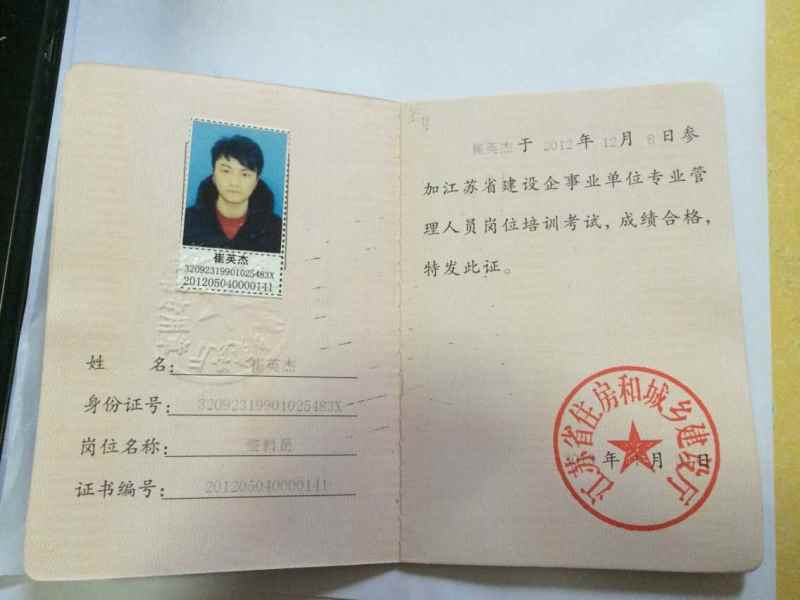 崔英杰
32092319901025483X
201205040000141
姓 名: 崔英杰
身份证号: 32092319901025483X
岗位名称: 资料员
证书编号: 201205040000141
崔英杰于 2012年 12月 8日参
加江苏省建设企事业单位专业管
理人员岗位培训考试，成绩合格，
特发此证。
江苏省住房和城乡建设厅
年 月 日